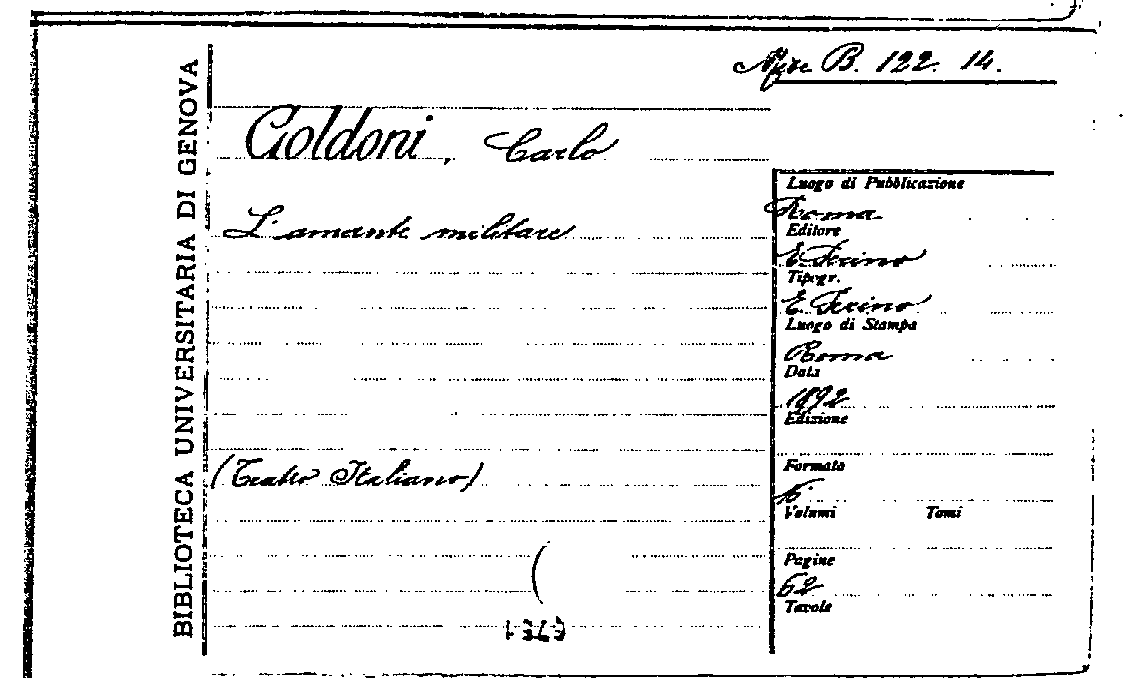 B. 122. 14.
BIBLIOTECA UNIVERSITARIA DI GENOVA
Goldoni, Carlo
L'amante militare
(Teatro Italiano)
Luogo di Pubblicazione
Roma
Editore
E. Perino
Tipogr.
E. Perino
Luogo di Stampa
Roma
Data
1892
Edizione
Formato
Volumi Tomi
Pagine
62
Tavole